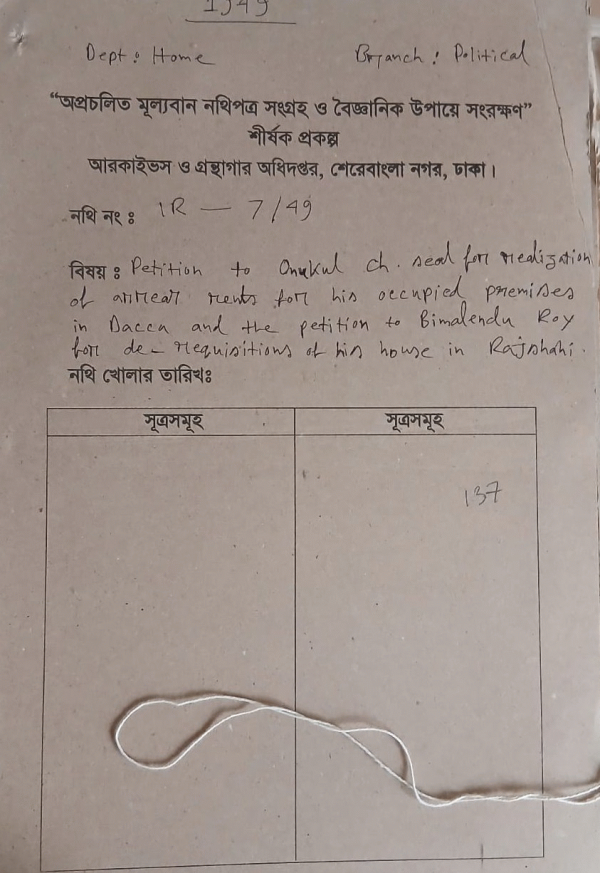 1949
Dept : Home Branch : Political
“অপ্রচলিত মূল্যবান নথিপত্র সংগ্রহ ও বৈজ্ঞানিক উপায়ে সংরক্ষণ”
শীর্ষক প্রকল্প
আরকাইভস ও গ্রন্থাগার অধিদপ্তর, শেরেবাংলা নগর, ঢাকা।
নথি নং ঃ 1R — 7/49
বিষয় ঃ Petition to Onukul Ch. seal for realization
of arrear rents for his occupied premises
in Dacca and the petition to Bimalendu Roy
for de-requisitions of his house in Rajshahi.
নথি খোলার তারিখঃ
সূত্রসমূহ সূত্রসমূহ
137